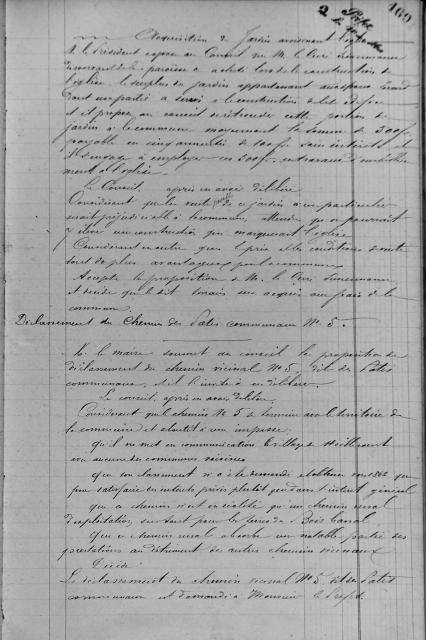 169
Préfet
Acquisition de Jardin avoisinant l'église
M. le Président expose au Conseil que M. le Curé
de la paroisse a acheté lors de la construction de
l'église le surplus de jardin appartenant
dont une partie a servi à la construction de l'édifice
et il propose au conseil de rétrocéder cette portion de
jardin à la commune moyennant la somme de 500f
payable en cinq annuités de 100f sans intérêts et
il s'engage à employer ces 500f en travaux d'embellissement
ment à l'église.
Le Conseil, après en avoir délibéré
Considérant que la vente de ce jardin à un particulier
serait préjudiciable à la commune, attendu qu'on pourrait
y élever une construction qui masquerait l'église
Considérant en outre que le prix et les conditions sont
tout de plus avantageux pour la commune
Accepte la proposition de M. le Curé
et décide que le dit terrain sera acquis aux frais de la
commune.
Déclassement du Chemin des Patis communaux N° 5.
M. le maire soumet au conseil la proposition de
déclassement du chemin vicinal N° 5, dit des Patis
communaux, et il l'invite à en délibérer.
Le conseil, après en avoir délibéré,
Considérant que le chemin N° 5 se termine avec le territoire de
la commune et aboutit à une impasse.
qu'il ne met en communication le village
avec aucune des communes voisines
Que son classement n'a été demandé et obtenu en 1862 que
pour satisfaire des intérêts privés plutôt que dans l'intérêt général
que ce chemin n'est en réalité qu'un chemin rural
d'exploitation, surtout pour la ferme de Bois
Que ce chemin rural absorbe une notable partie des
prestations au détriment des autres chemins vicinaux
Décide:
Le déclassement du chemin vicinal N° 5 dit des Patis
communaux et demande à Monsieur le Préfet